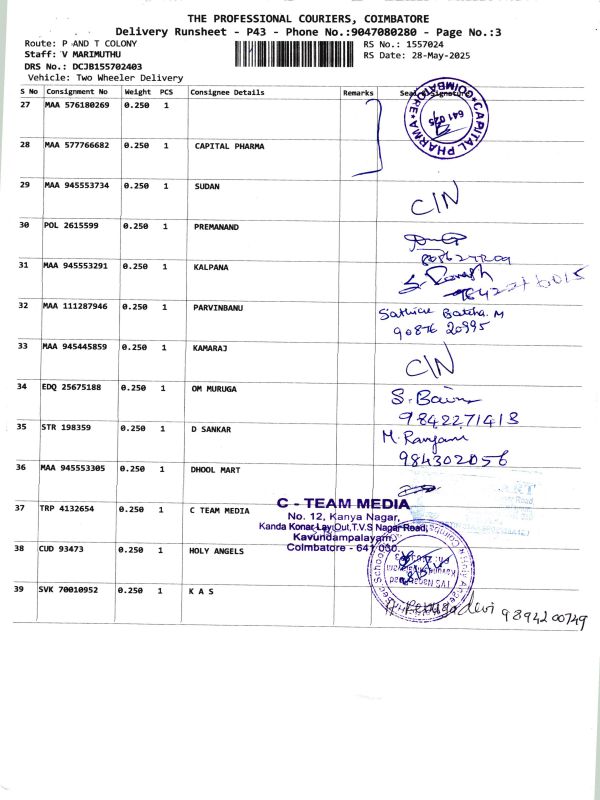 THE PROFESSIONAL COURIERS, COIMBATORE
Delivery Runsheet - P43 - Phone No.:9047080280 - Page No.:3
Route: P AND T COLONY
RS No.: 1557024
Staff: V MARIMUTHU
RS Date: 28-May-2025
DRS No.: DCJB155702403
Vehicle: Two Wheeler Delivery
S No Consignment No Weight PCS Consignee Details Remarks Seal & Signature
27 MAA 576180269 0.250 1
CAPITAL PHARMA COIMBATORE 641 025
28 MAA 577766682 0.250 1 CAPITAL PHARMA
29 MAA 945553734 0.250 1 SUDAN
C/N
30 POL 2615599 0.250 1 PREMANAND
31 MAA 945553291 0.250 1 KALPANA
32 MAA 111287946 0.250 1 PARVINBANU
Batcha. M
90876 20995
33 MAA 945445859 0.250 1 KAMARAJ
C/N
34 EDQ 25675188 0.250 1 OM MURUGA
9842271413
35 STR 198359 0.250 1 D SANKAR
M. Ranjani
984302056
36 MAA 945553305 0.250 1 DHOOL MART
37 TRP 4132654 0.250 1 C TEAM MEDIA
C - TEAM MEDIA
No. 12, Kanya Nagar,
Kanda Konar Lay Out, T.V.S Nagar Road,
Kavundampalayam,
Coimbatore - 641 030.
38 CUD 93473 0.250 1 HOLY ANGELS
TVS Nagar Road
39 SVK 70010952 0.250 1 K A S
9894200749